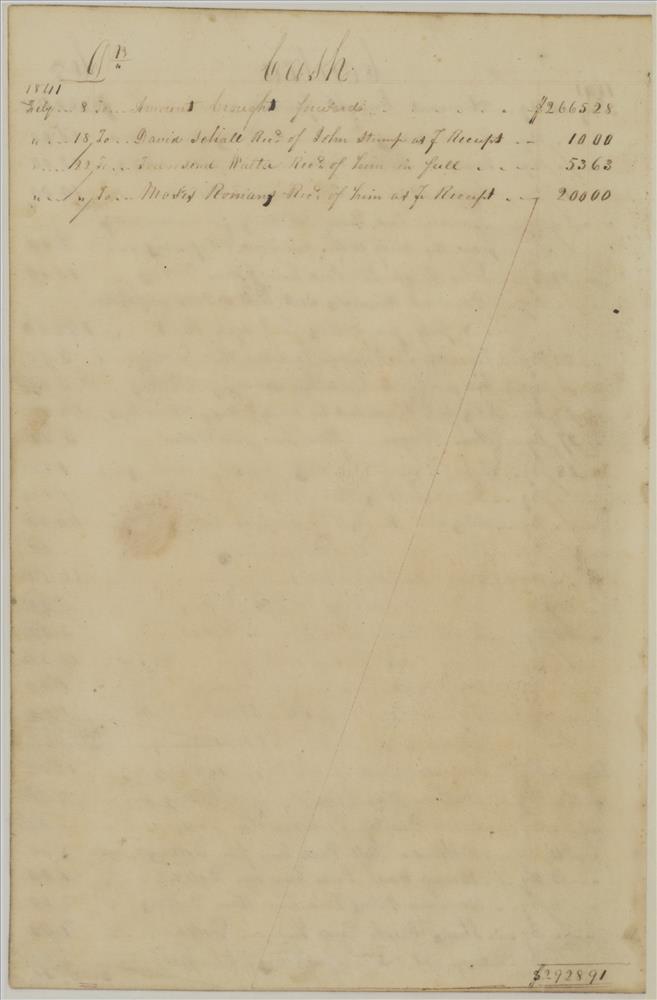 Dr Cash
1841
Feby 8 To Amount brought forward $2665 28
" 18 To David Schall Recd of John Stump as pr Receipt 10 00
" 22 To Townsend Walter Recd of him in full 53 63
" " To Moses Romans Recd of him as pr Receipt 200 00
$2928 91